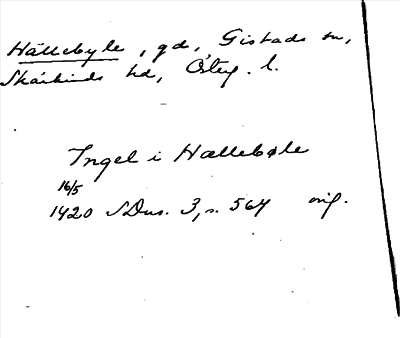 Hällebyle, gd, Gistads sn,
Skärkinds hd, Östg. l.
Ingel i Hællebøle
16/5
1420 SDns. 3, s. 564 orig.